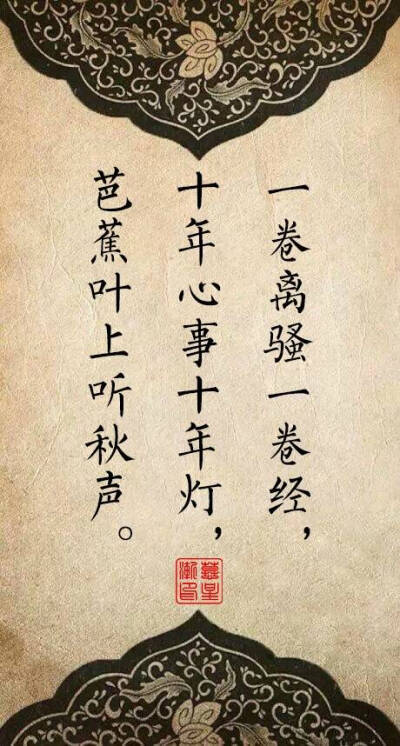 一卷离骚一卷经，
十年心事十年灯，
芭蕉叶上听秋声。